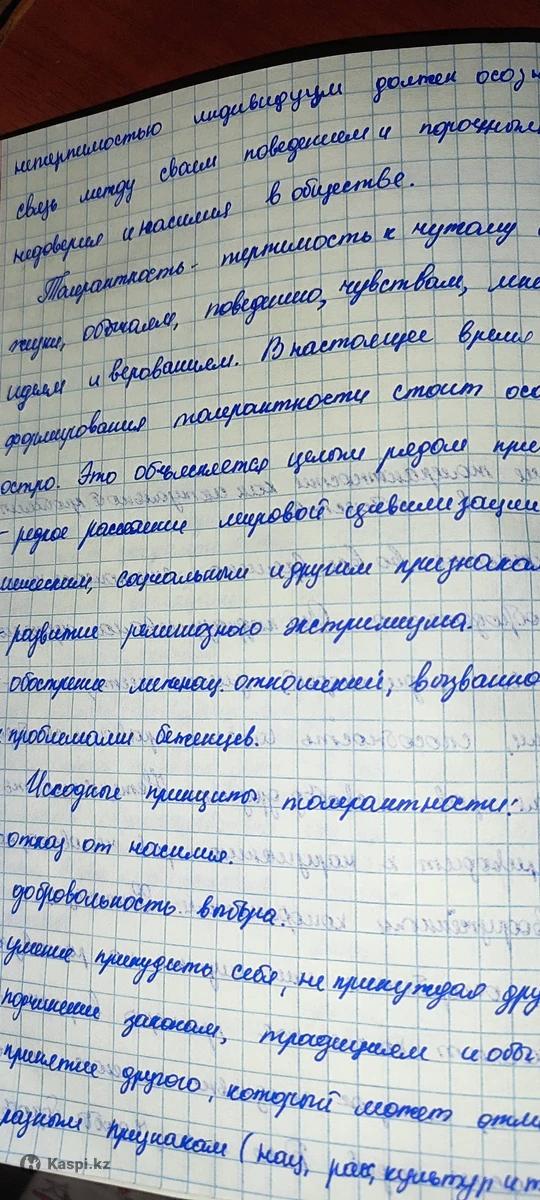 нетерпимостью индивидуум должен осозн
связь между своим поведением и порочным
недоверия и насилия в обществе.
Толерантность - терпимость к чужому
жизни, обычаям, поведению, чувствам, мне
идеям и верованиям. В настоящее время
формирования толерантности стоит осо
остро. Это объясняется целым рядом при
- резкое расслоение мировой цивилизации
социальным и другим признакам
- развитие религиозного экстремизма.
- обострение межнац. отношений, вызванно
проблемами беженцев.
Исходные принципы толерантности:
отказ от насилия.
добровольность выбора.
умение принудить себя, не принуждая дру
подчинение законам, традициям и обы
принятие другого, который может отли
разным признакам (нац, рас, культур и т
Kaspi.kz